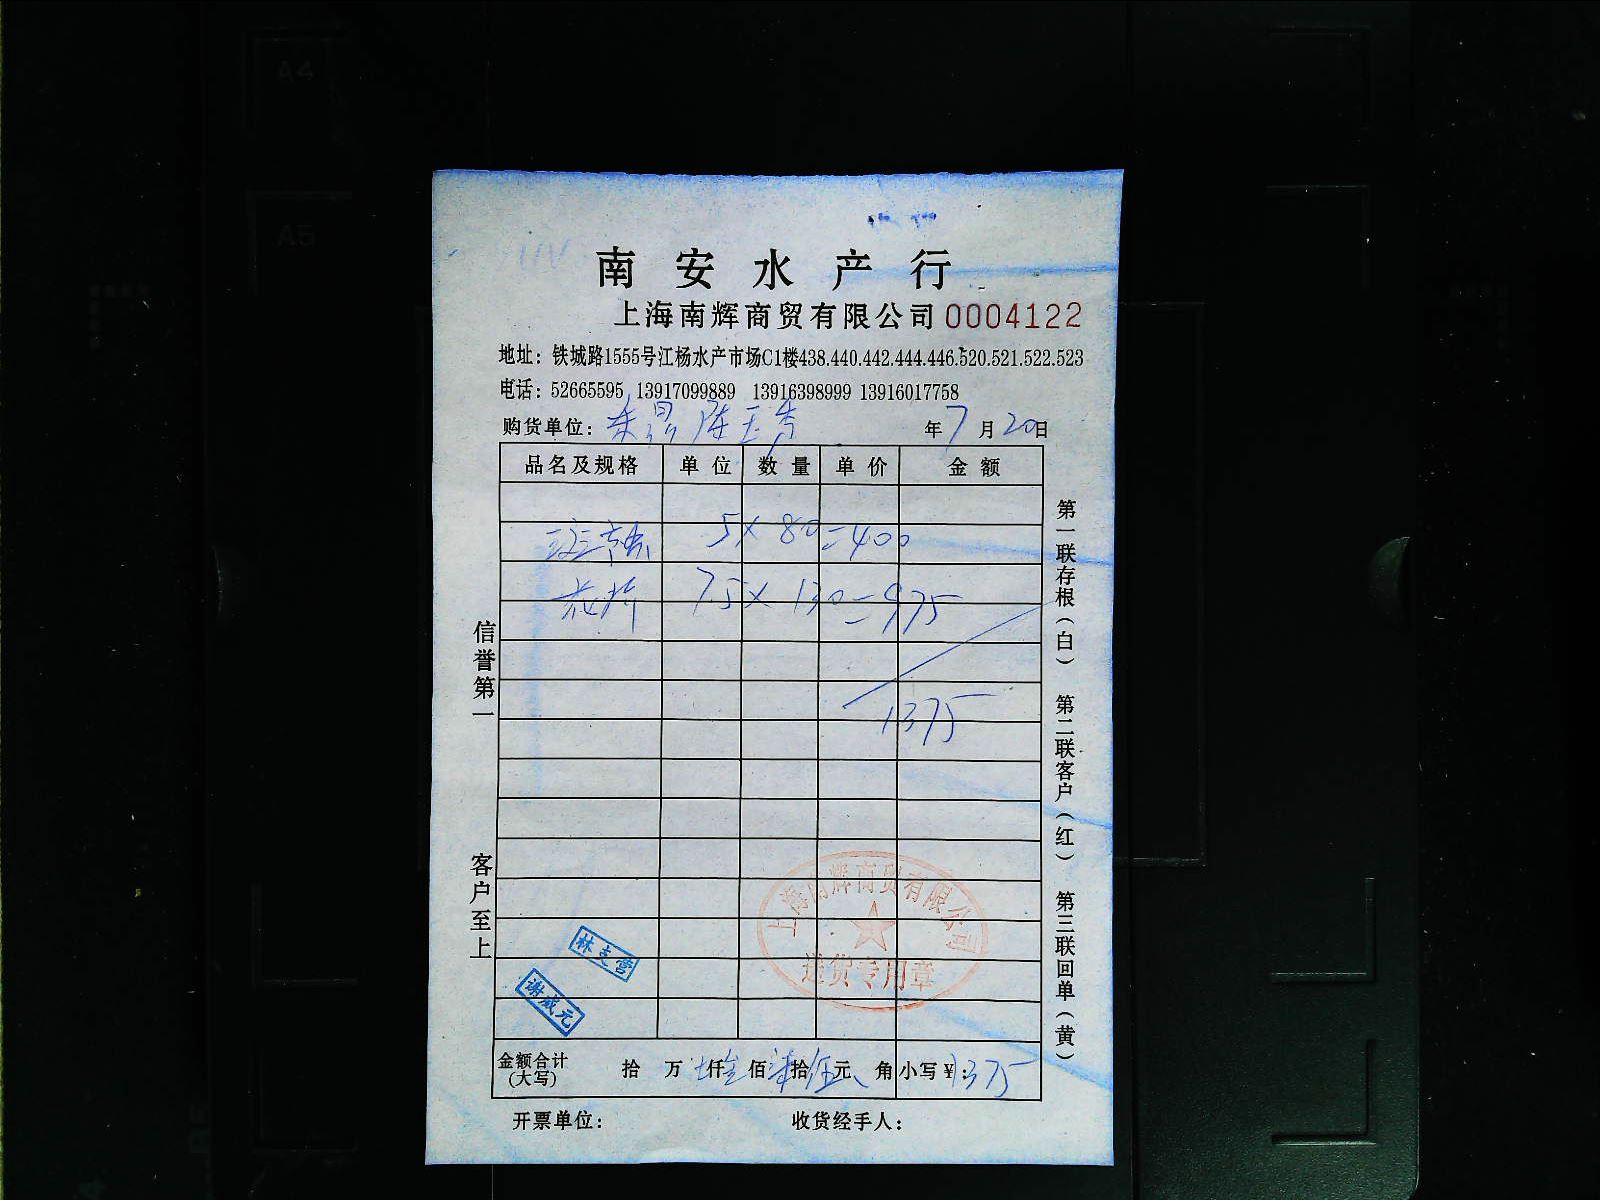 A4
A5
南安水产行
上海南辉商贸有限公司 0004122
地址：铁城路1555号江杨水产市场C1楼438.440.442.444.446.520.521.522.523
电话：52665595 13917099889 13916398999 13916017758
购货单位： 年7月20日
品名及规格 单位 数量 单价 金额
5×80=400
7.5×130=975
1375
信誉第一
客户至上
第一联存根(白) 第二联客户(红) 第三联回单(黄)
上海南辉商贸有限公司
送货专用章
林支营
谢成元
金额合计(大写) 拾 万 仟 佰 拾 伍元 角 小写¥：1375
开票单位： 收货经手人：